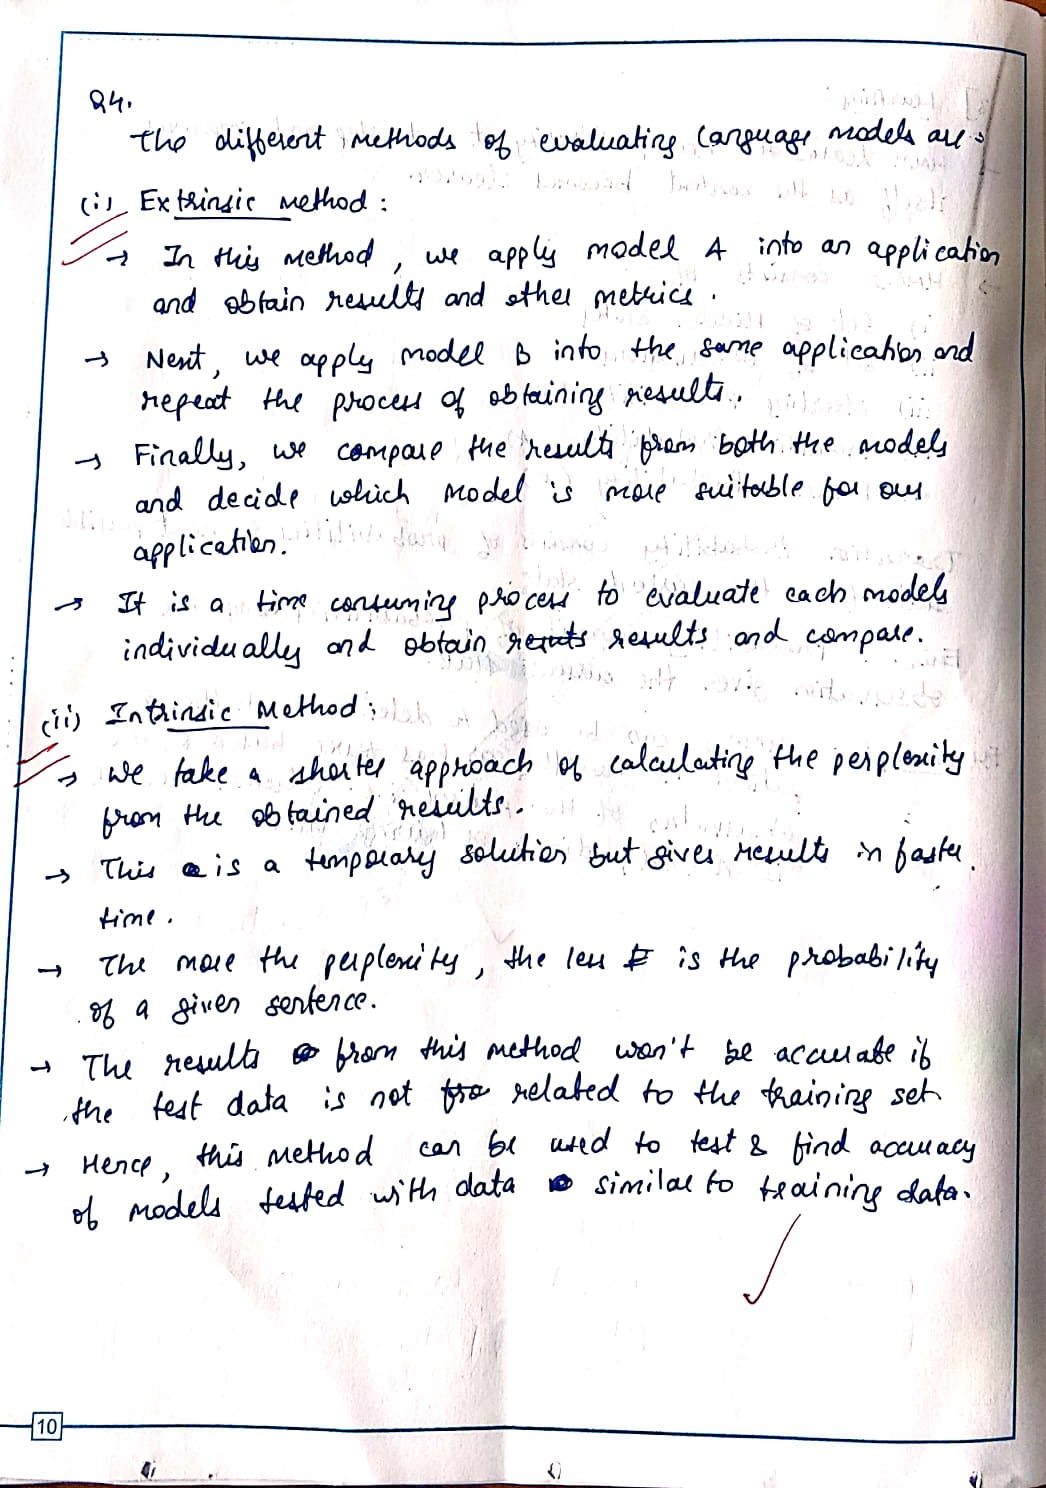 Q4.
The different methods of evaluating language models are :
(i) Extrinsic method :
→ In this method, we apply model A into an application
and obtain results and other metrics.
→ Next, we apply model B into the same application and
repeat the process of obtaining results.
→ Finally, we compare the results from both the models
and decide which model is more suitable for our
application.
→ It is a time consuming process to evaluate each models
individually and obtain results and compare.
(ii) Intrinsic Method :
→ we take a shorter approach of calculating the perplexity
from the obtained results.
→ This is a temporary solution but gives results in faster
time.
→ The more the perplexity, the less is the probability
of a given sentence.
→ The results from this method won't be accurate if
the test data is not related to the training set
→ Hence, this method can be used to test & find accuracy
of models tested with data similar to training data.
10